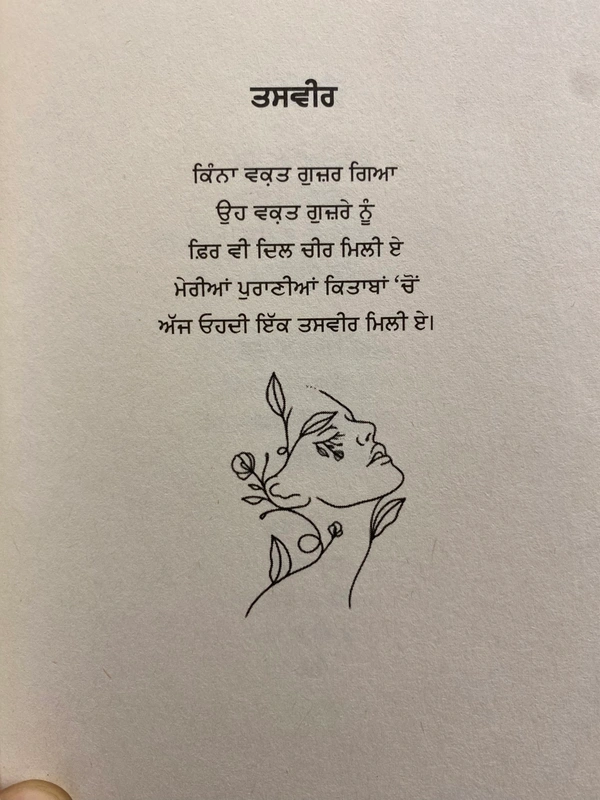 ਤਸਵੀਰ
ਕਿੰਨਾ ਵਕ਼ਤ ਗੁਜ਼ਰ ਗਿਆ
ਉਹ ਵਕ਼ਤ ਗੁਜ਼ਰੇ ਨੂੰ
ਫ਼ਿਰ ਵੀ ਦਿਲ ਚੀਰ ਮਿਲੀ ਏ
ਮੇਰੀਆਂ ਪੁਰਾਣੀਆਂ ਕਿਤਾਬਾਂ ‘ਚੋਂ
ਅੱਜ ਓਹਦੀ ਇੱਕ ਤਸਵੀਰ ਮਿਲੀ ਏ।